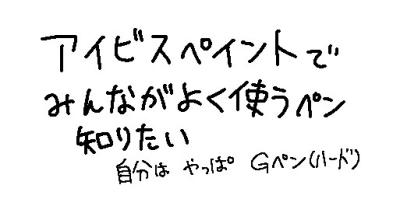 アイビスペイントで
みんながよく使うペン
知りたい
自分は やっぱ Gペン(ハード)